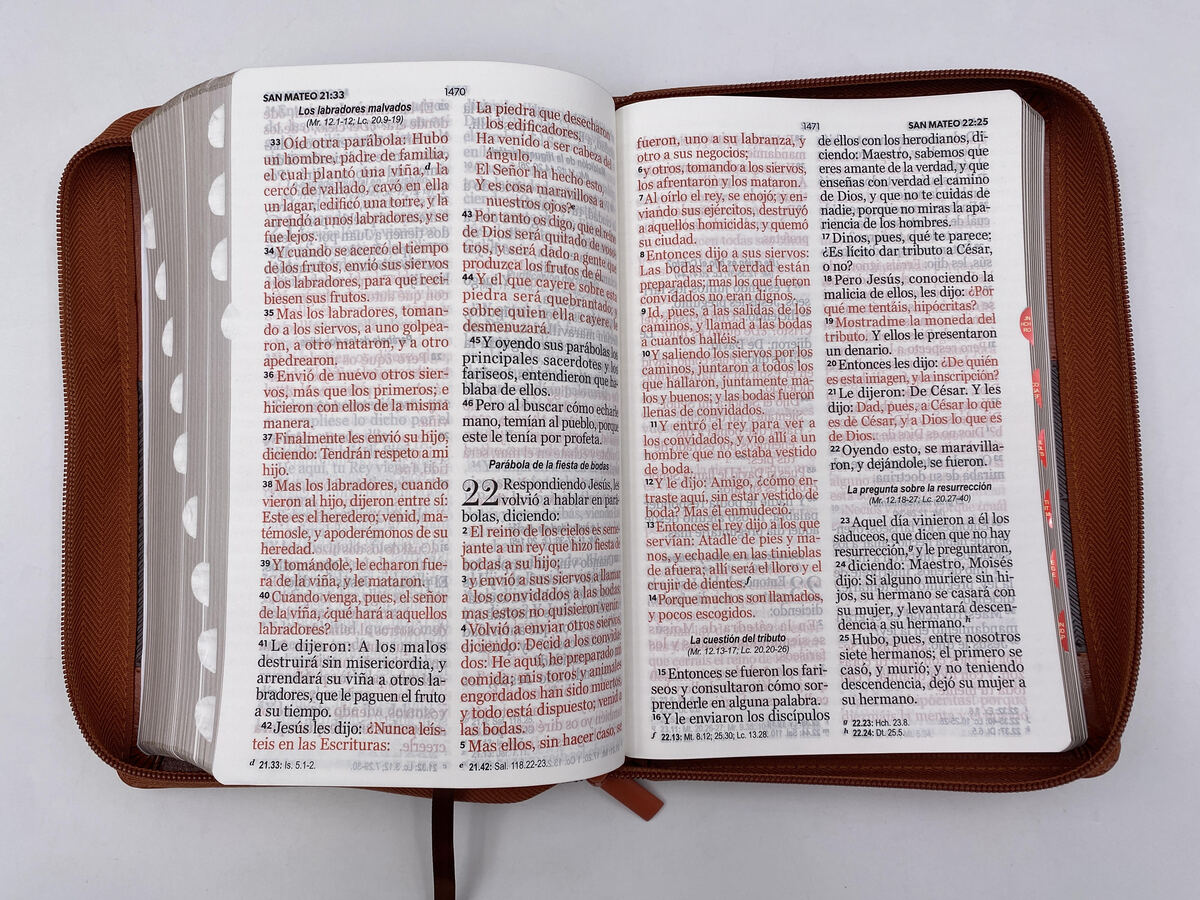 SAN MATEO 21:33
1470
Los labradores malvados
(Mr. 12.1-12; Lc. 20.9-19)
33 Oíd otra parábola: Hubo
un hombre, padre de familia,
el cual plantó una viña,d la
cercó de vallado, cavó en ella
un lagar, edificó una torre, y la
arrendó a unos labradores, y se
fue lejos.
34 Y cuando se acercó el tiempo
de los frutos, envió sus siervos
a los labradores, para que reci-
biesen sus frutos.
35 Mas los labradores, toman-
do a los siervos, a uno golpea-
ron, a otro mataron, y a otro
apedrearon.
36 Envió de nuevo otros sier-
vos, más que los primeros; e
hicieron con ellos de la misma
manera.
37 Finalmente les envió su hijo,
diciendo: Tendrán respeto a mi
hijo.
38 Mas los labradores, cuando
vieron al hijo, dijeron entre sí:
Este es el heredero; venid, ma-
témosle, y apoderémonos de su
heredad.
39 Y tomándole, le echaron fue-
ra de la viña, y le mataron.
40 Cuando venga, pues, el señor
de la viña, ¿qué hará a aquellos
labradores?
41 Le dijeron: A los malos
destruirá sin misericordia, y
arrendará su viña a otros la-
bradores, que le paguen el fruto
a su tiempo.
42 Jesús les dijo: ¿Nunca leís-
teis en las Escrituras:
d 21.33: Is. 5.1-2.
La piedra que desecharon
los edificadores,
Ha venido a ser cabeza del
ángulo.
El Señor ha hecho esto,
Y es cosa maravillosa a
nuestros ojos?e
43 Por tanto os digo, que el reino
de Dios será quitado de voso-
tros, y será dado a gente que
produzca los frutos de él.
44 Y el que cayere sobre esta
piedra será quebrantado; y
sobre quien ella cayere, le
desmenuzará.
45 Y oyendo sus parábolas los
principales sacerdotes y los
fariseos, entendieron que ha-
blaba de ellos.
46 Pero al buscar cómo echarle
mano, temían al pueblo, porque
este le tenía por profeta.
Parábola de la fiesta de bodas
22 Respondiendo Jesús, les
volvió a hablar en pará-
bolas, diciendo:
2 El reino de los cielos es seme-
jante a un rey que hizo fiesta de
bodas a su hijo;
3 y envió a sus siervos a llamar
a los convidados a las bodas;
mas estos no quisieron venir.
4 Volvió a enviar otros siervos,
diciendo: Decid a los convida-
dos: He aquí, he preparado mi
comida; mis toros y animales
engordados han sido muertos,
y todo está dispuesto; venid a
las bodas.
5 Mas ellos, sin hacer caso, se
e 21.42: Sal. 118.22-23.
1471
SAN MATEO 22:25
fueron, uno a su labranza, y
otro a sus negocios;
6 y otros, tomando a los siervos,
los afrentaron y los mataron.
7 Al oírlo el rey, se enojó; y en-
viando sus ejércitos, destruyó
a aquellos homicidas, y quemó
su ciudad.
8 Entonces dijo a sus siervos:
Las bodas a la verdad están
preparadas; mas los que fueron
convidados no eran dignos.
9 Id, pues, a las salidas de los
caminos, y llamad a las bodas
a cuantos halléis.
10 Y saliendo los siervos por los
caminos, juntaron a todos los
que hallaron, juntamente ma-
los y buenos; y las bodas fueron
llenas de convidados.
11 Y entró el rey para ver a
los convidados, y vio allí a un
hombre que no estaba vestido
de boda.
12 Y le dijo: Amigo, ¿cómo en-
traste aquí, sin estar vestido de
boda? Mas él enmudeció.
13 Entonces el rey dijo a los que
servían: Atadle de pies y ma-
nos, y echadle en las tinieblas
de afuera; allí será el lloro y el
crujir de dientes.f
14 Porque muchos son llamados,
y pocos escogidos.
La cuestión del tributo
(Mr. 12.13-17; Lc. 20.20-26)
15 Entonces se fueron los fari-
seos y consultaron cómo sor-
prenderle en alguna palabra.
16 Y le enviaron los discípulos
f 22.13: Mt. 8.12; 25.30; Lc. 13.28.
de ellos con los herodianos, di-
ciendo: Maestro, sabemos que
eres amante de la verdad, y que
enseñas con verdad el camino
de Dios, y que no te cuidas de
nadie, porque no miras la apa-
riencia de los hombres.
17 Dinos, pues, qué te parece:
¿Es lícito dar tributo a César,
o no?
18 Pero Jesús, conociendo la
malicia de ellos, les dijo: ¿Por
qué me tentáis, hipócritas?
19 Mostradme la moneda del
tributo. Y ellos le presentaron
un denario.
20 Entonces les dijo: ¿De quién
es esta imagen, y la inscripción?
21 Le dijeron: De César. Y les
dijo: Dad, pues, a César lo que
es de César, y a Dios lo que es
de Dios.
22 Oyendo esto, se maravilla-
ron, y dejándole, se fueron.
La pregunta sobre la resurrección
(Mr. 12.18-27; Lc. 20.27-40)
23 Aquel día vinieron a él los
saduceos, que dicen que no hay
resurrección,g y le preguntaron,
24 diciendo: Maestro, Moisés
dijo: Si alguno muriere sin hi-
jos, su hermano se casará con
su mujer, y levantará descen-
dencia a su hermano.h
25 Hubo, pues, entre nosotros
siete hermanos; el primero se
casó, y murió; y no teniendo
descendencia, dejó su mujer a
su hermano.
g 22.23: Hch. 23.8.
h 22.24: Dt. 25.5.